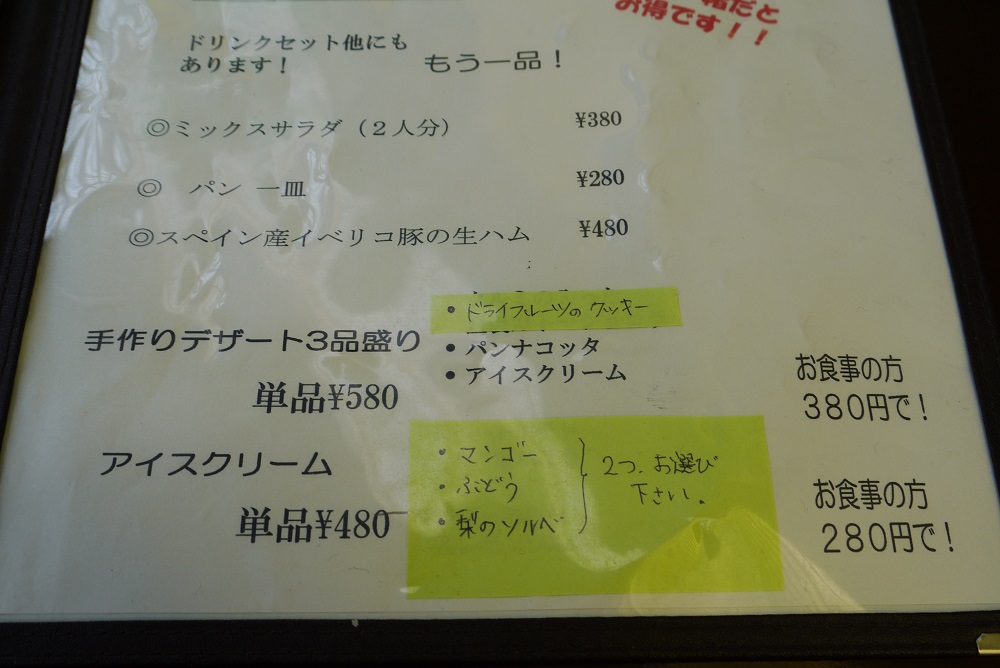 緒だと
お得です！！
ドリンクセット他にも
あります！
もう一品！
◎ミックスサラダ（２人分） ¥380
◎ パン 一皿 ¥280
◎スペイン産イベリコ豚の生ハム ¥480
・ドライフルーツのクッキー
手作りデザート3品盛り
・パンナコッタ
・アイスクリーム
単品¥580
お食事の方
380円で！
アイスクリーム
・マンゴー
・ぶどう
・梨のソルベ
2つ、お選び
下さい。
単品¥480
お食事の方
280円で！